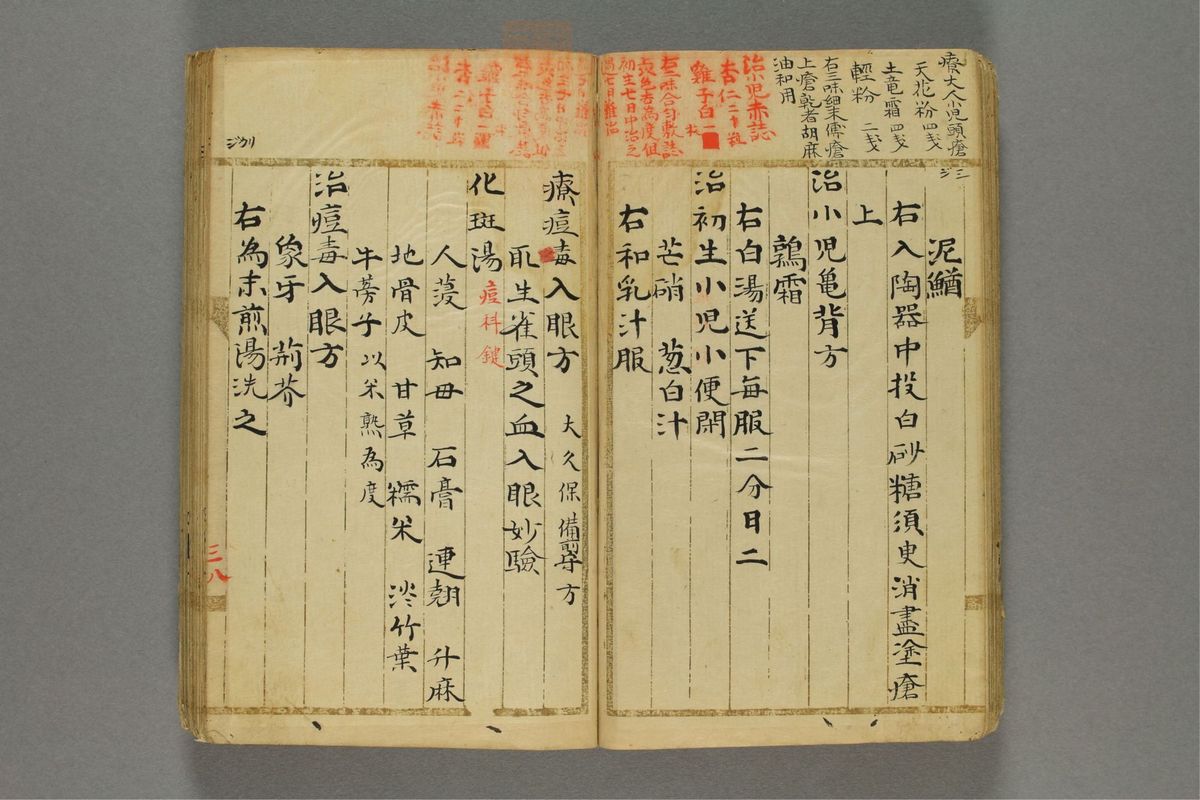 療大人小児頭瘡
天花粉 四戔
土竜霜 四戔
輕粉 二戔
右三味細末傅瘡
上瘡乾者胡麻
油和用
治小児赤誌
杏仁二十粒
雞子白一
右二味合匀敷誌
初生七日中治之
泥鰌
右入陶器中投白砂糖須臾消盡塗瘡
上
治小児亀背方
鶉霜
右白湯送下毎服二分日二
治初生小児小便閉
芒硝 葱白汁
右和乳汁服
療痘毒入眼方 大久保備前守方
取生雀頭之血入眼妙驗
化斑湯 痘科鍵
人葠 知母 石膏 連翹 升麻
地骨皮 甘草 糯米 淡竹葉
牛蒡子 以米熟為度
治痘毒入眼方
象牙 荊芥
右為末煎湯洗之
三八